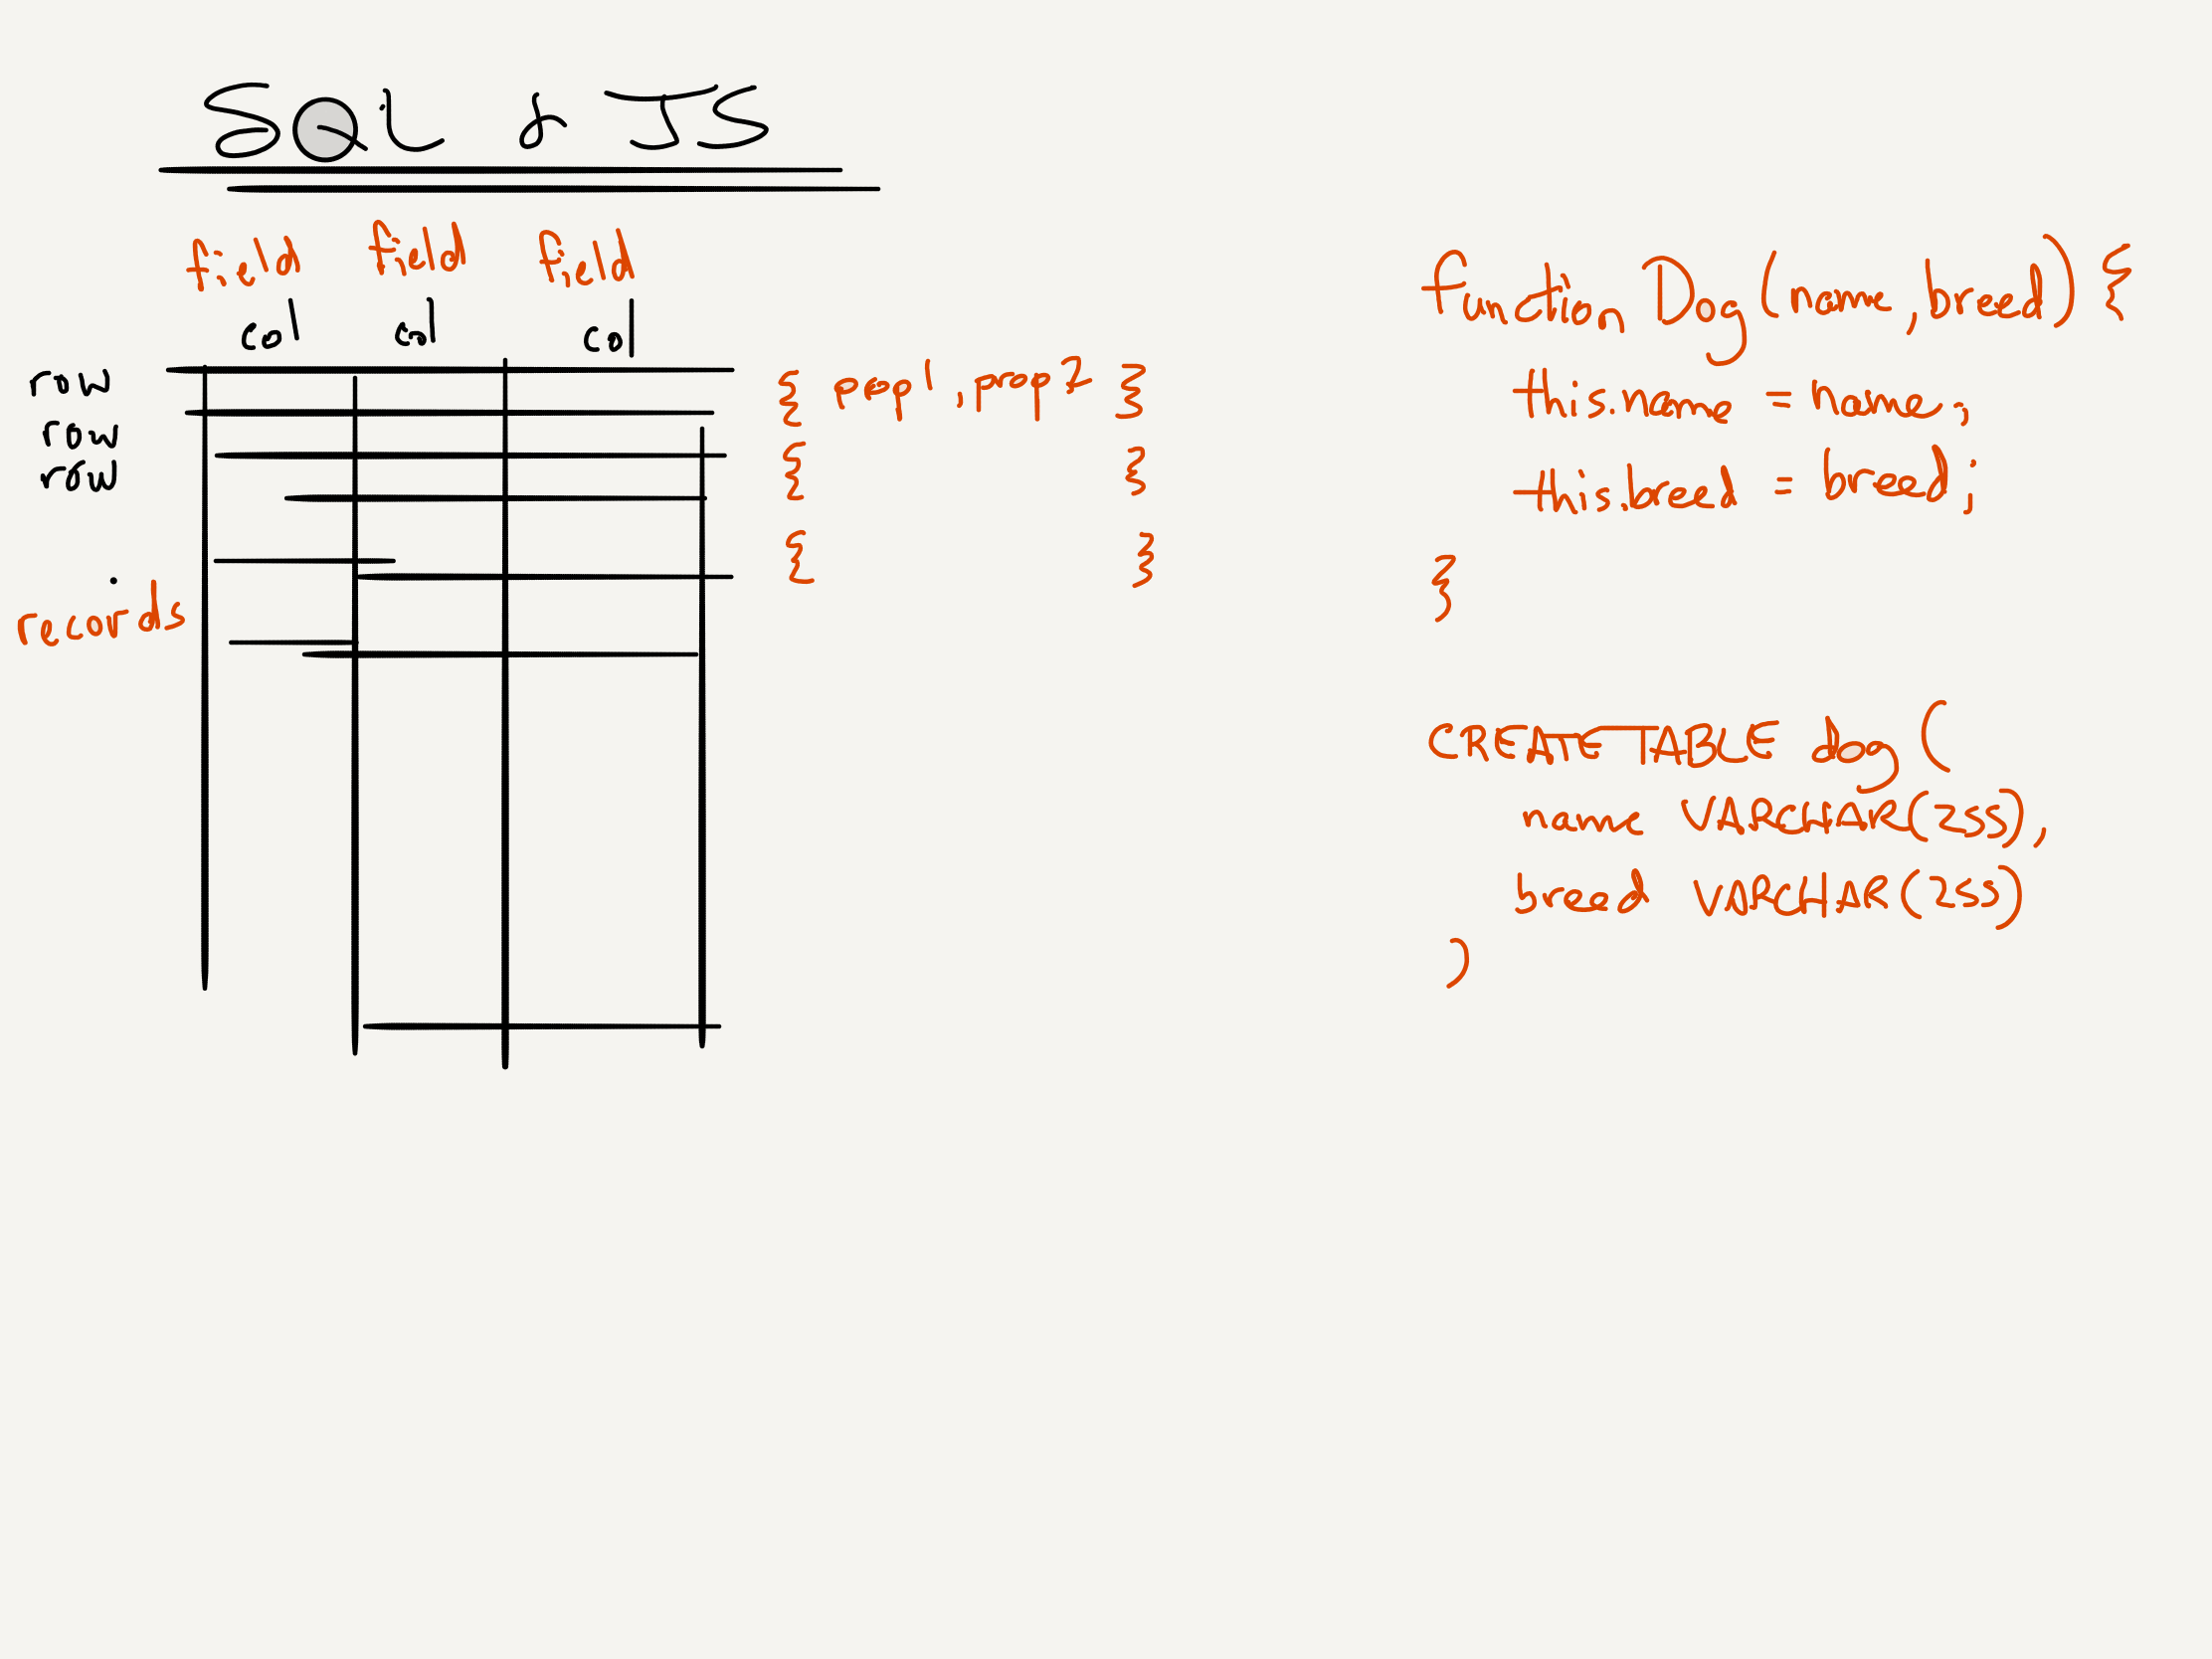 SQL & JS
field field field
col col col
row
row
row
records
{ prop1, prop2 }
{ }
{ }
function Dog(name, breed) {
this.name = name;
this.breed = breed;
}
CREATE TABLE dog (
name VARCHAR(255),
breed VARCHAR(255)
)